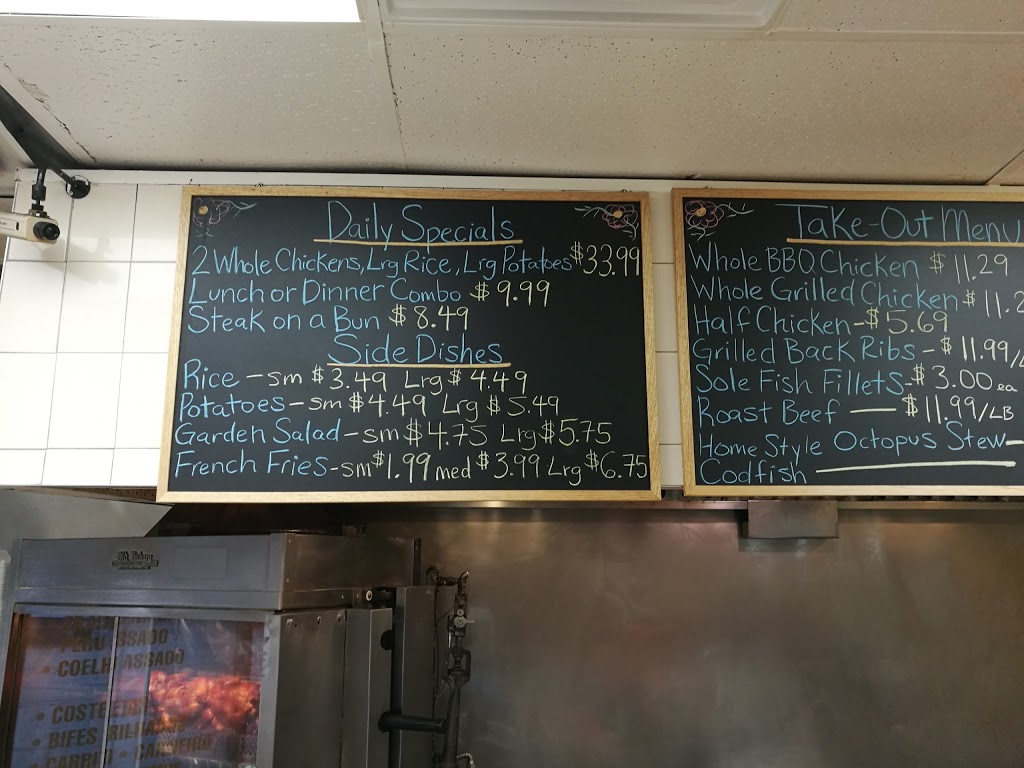 Daily Specials
2 Whole Chickens, Lrg Rice, Lrg Potatoes $33.99
Lunch or Dinner Combo $9.99
Steak on a Bun $8.49
Side Dishes
Rice - sm $3.49 Lrg $4.49
Potatoes - sm $4.49 Lrg $5.49
Garden Salad - sm $4.75 Lrg $5.75
French Fries - sm $1.99 med $3.99 Lrg $6.75
Take-Out Menu
Whole BBQ Chicken $11.29
Whole Grilled Chicken $11.2
Half Chicken - $5.69
Grilled Back Ribs - $11.99/L
Sole Fish Fillets - $3.00 ea
Roast Beef — $11.99/LB
Home Style Octopus Stew —
Codfish
PERU ASSADO
• COELH ASSADO
• BIFES